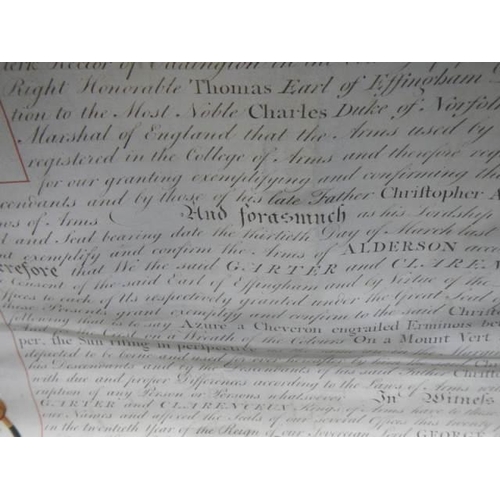 Rector of Addington in the
Right Honorable Thomas Earl of Effingham
tion to the Most Noble Charles Duke of Norfolk
Marshal of England that the Arms used by
registered in the College of Arms and therefore
for our granting exemplifying and confirming
cendants and by those of his late Father Christopher A
ws of Arms And forasmuch as his Lordship
and Seal bearing date the thirtieth Day of March last
exemplify and confirm the Arms of ALDERSON
refore that We the said GARTER and CLAREN
Consent of the said Earl of Effingham and by Virtue of the
Offices to each of Us respectively granted under the Great Seal
Presents grant exemplify and confirm to the said Christ
following that is to say Azure a Cheveron engrailed Erminois
And for the Crest on a Wreath of the Colours On a Mount Vert
per, the Sun rising in
depicted to be borne and used for ever
his Descendants and by the Descendants of his said Father
with due and proper Differences according to the Laws of Arms
ception of any Person or Persons whatsoever In Witness
GARTER and CLARENCEUX Kings of Arms have to these
our Names and affixed the Seals of our several Offices this twenty
in the twentieth Year of the Reign of our Sovereign Lord GEORGE